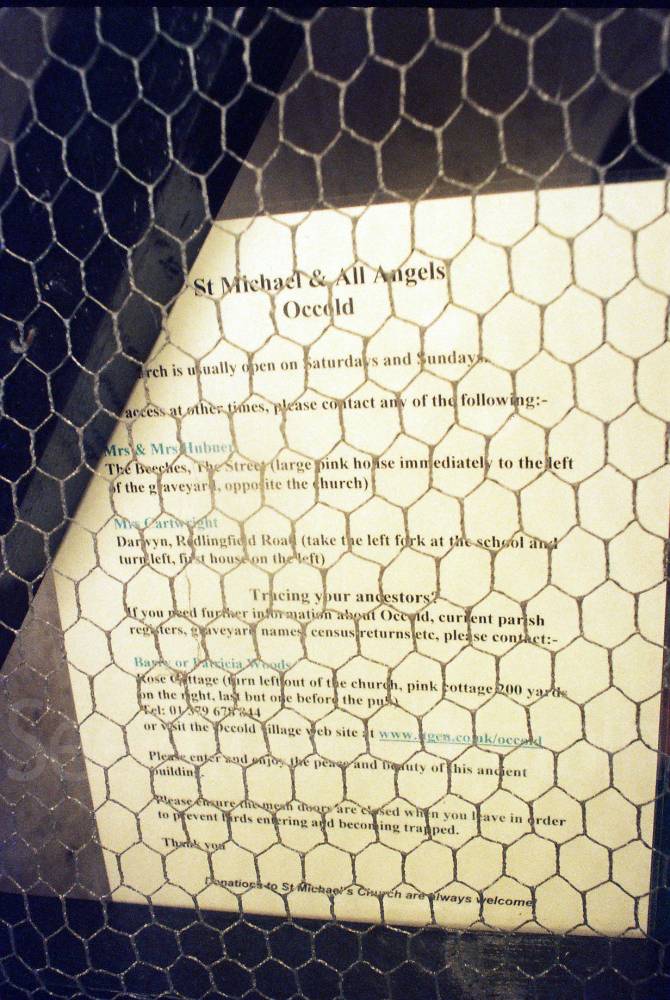 St Michael & All Angels
Occold
rch is usually open on Saturdays and Sundays.
access at other times, please contact any of the following:-
Mrs & Mrs Hubner
The Beeches, The Street (large pink house immediately to the left
of the graveyard, opposite the church)
Mrs Cartwright
Darwyn, Redlingfield Road (take the left fork at the school and
turn left, first house on the left)
Tracing your ancestors?
If you need further information about Occold, current parish
registers, graveyard names, census returns etc, please contact:-
Barry or Patricia Woods
Rose Cottage (turn left out of the church, pink cottage 200 yards
on the right, last but one before the pub)
Tel: 01379 678
or visit the Occold village web site at
Please enter and enjoy the peace and beauty of this ancient
building
Please ensure the mesh doors are closed when you leave in order
to prevent birds entering and becoming trapped.
Thank you
Donations to St Michael's Church are always welcome